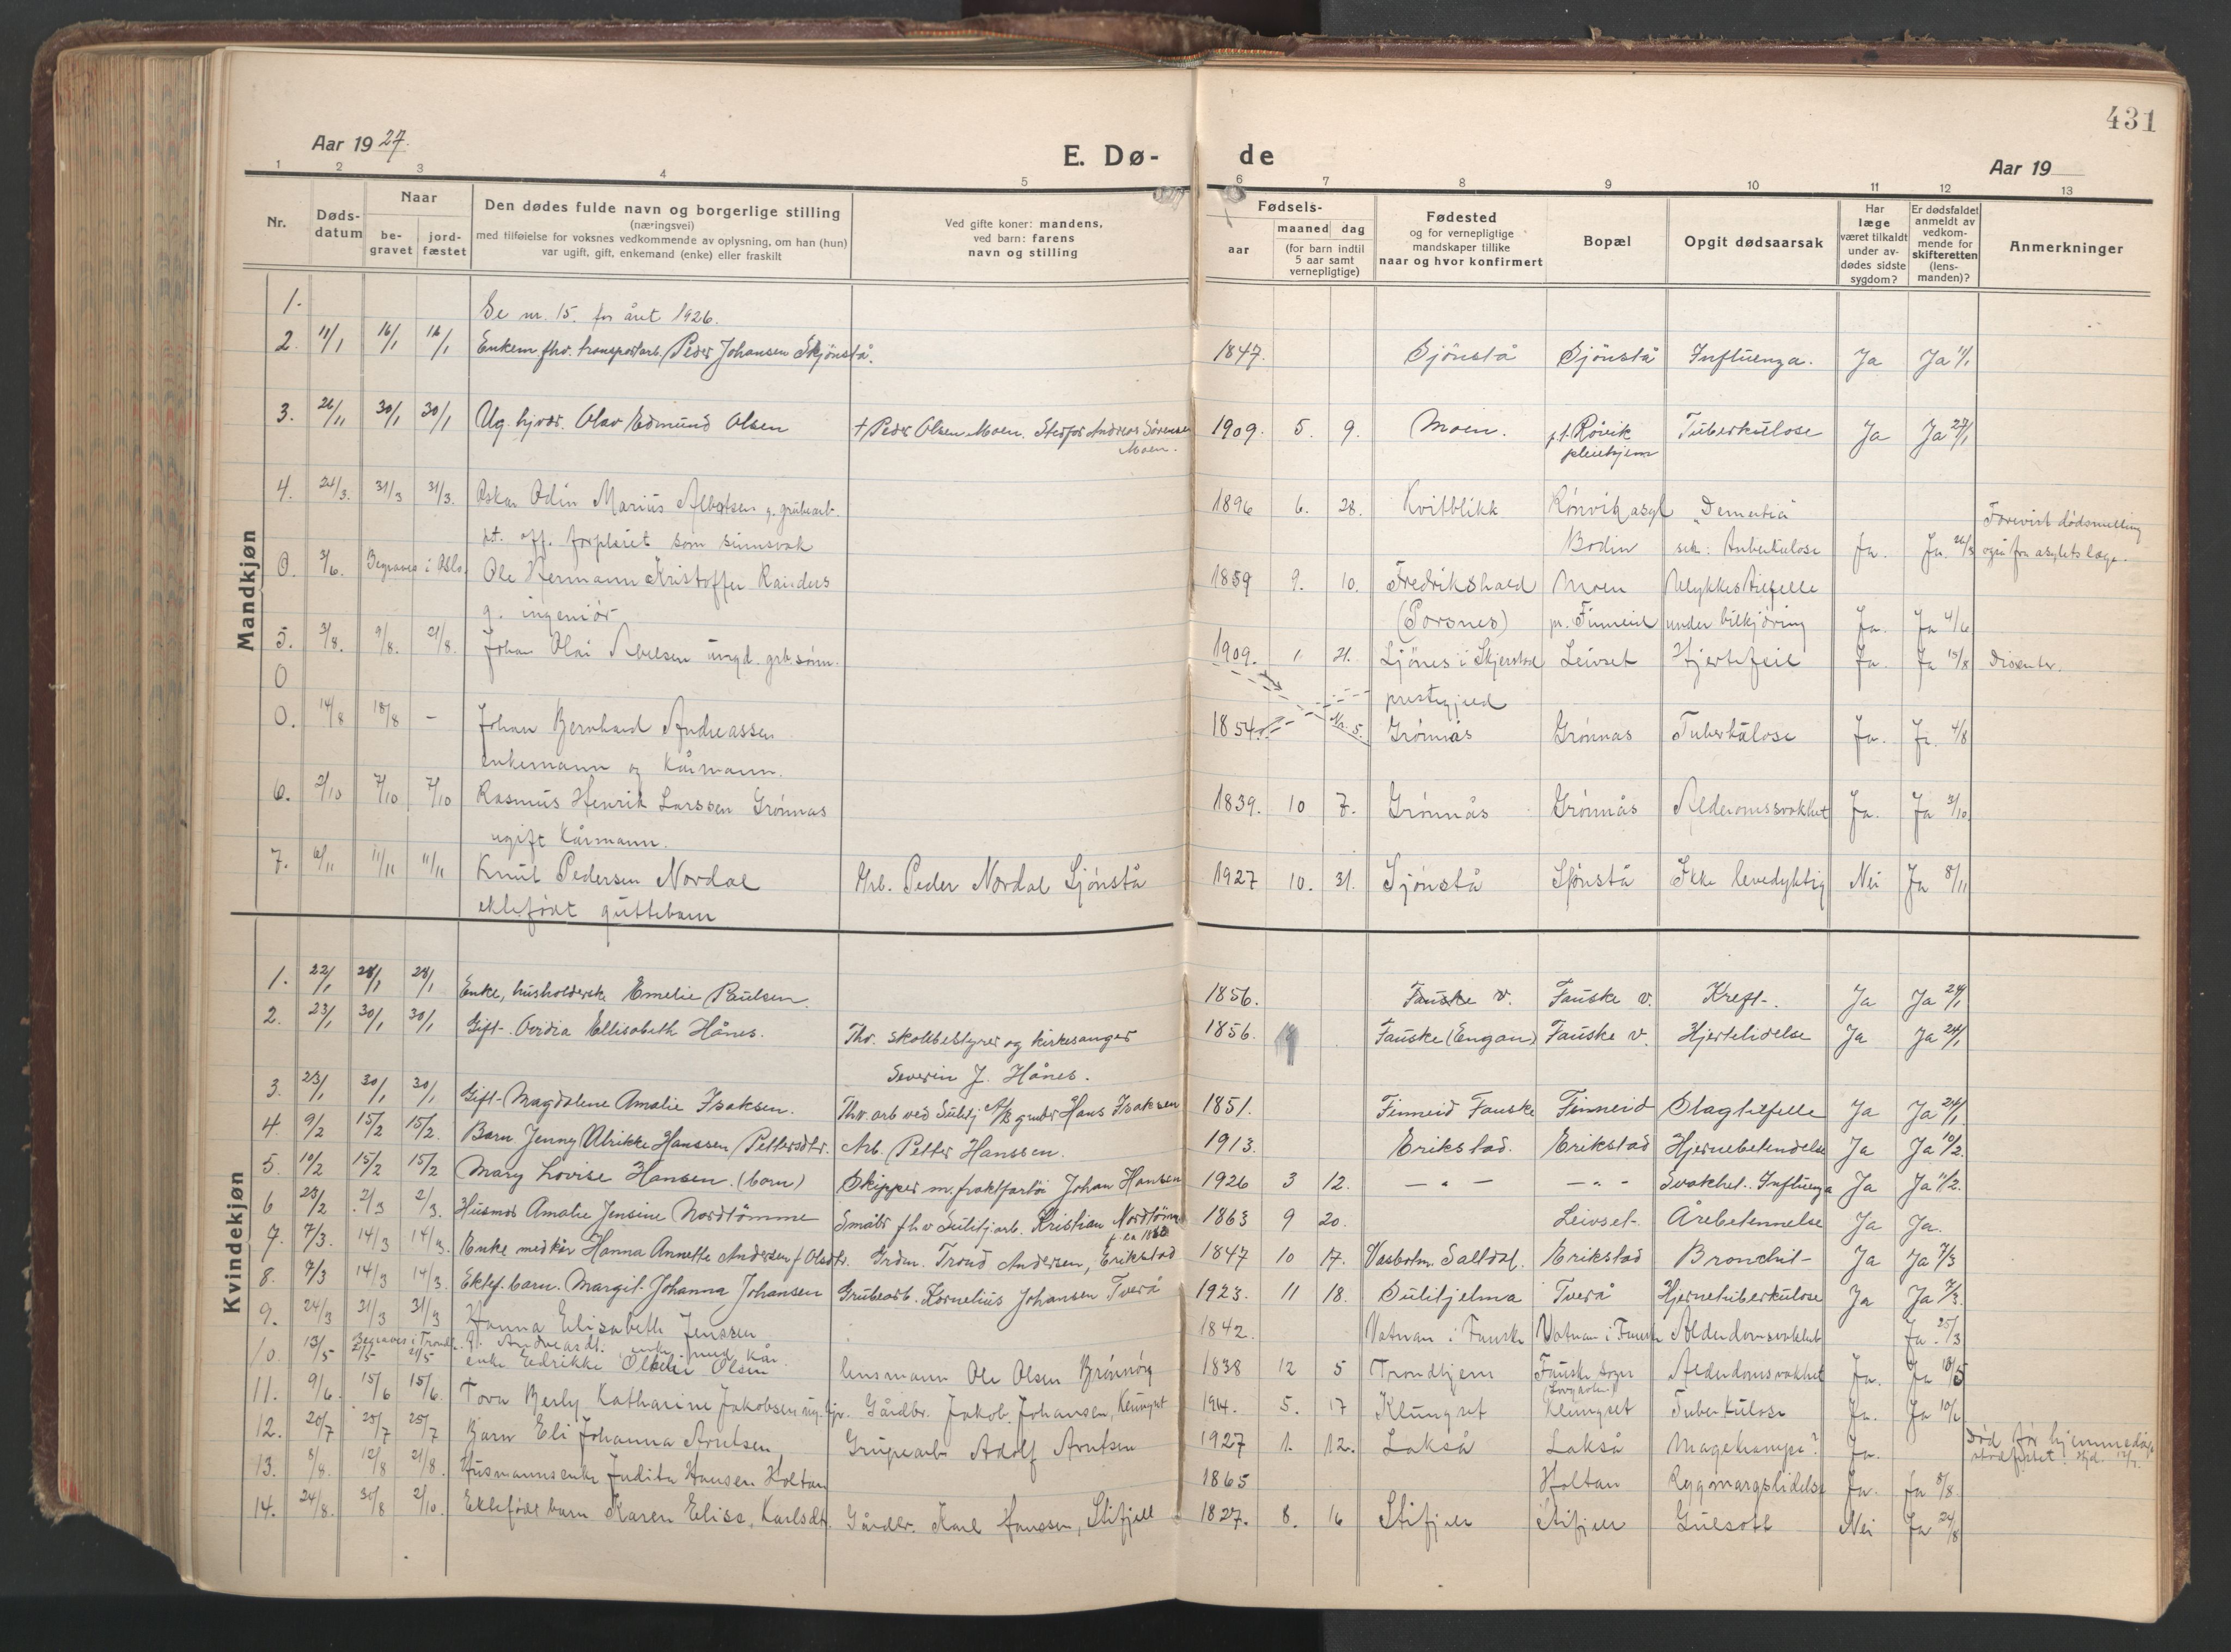 431
Aar 1927.
E. Dø-
de
Aar 19
1 2 3 4 5 6 7 8 9 10 11 12 13
Nr.
Døds-
datum
Naar
be-
gravet
jord-
fæstet
Den dødes fulde navn og borgerlige stilling
(næringsvei)
med tilføielse for voksnes vedkommende av oplysning, om han (hun)
var ugift, gift, enkemand (enke) eller fraskilt
Ved gifte koner: mandens,
ved barn: farens
navn og stilling
Fødsels-
aar
maaned dag
(for barn indtil
5 aar samt
vernepligtige)
Fødested
og for vernepligtige
mandskaper tillike
naar og hvor konfirmert
Bopæl
Opgit dødsaarsak
Har
læge
været tilkaldt
under av-
dødes sidste
sygdom?
Er dødsfaldet
anmeldt av
vedkom-
mende for
skifteretten
(lens-
manden)?
Anmerkninger
Mandkjøn
1. Se nr. 15. for året 1926.
2. 11/1 16/1 16/1 Enkem fhv. transportarb. Peder Johansen Skjönstå. 1847. Sjönstå Sjönstå Influenza. Ja Ja 11/1
3. 26/11 30/1 30/1 Ug. hjvær. Olav Edmund Olsen + Peder Olsen Moen. Stedfar Andreas Sörensen 1909. 5. 9. Moen. p.t. Rövik Tuberkulose Ja Ja 27/1
Moen. pleiehjem
4. 24/3. 31/3 31/3. Oskar Odin Marius Albertsen g. grubearb. 1896 6. 28. Kvitblikk Rönvik asyl "Dementia" Forevist dødsmelding
pt. off. forpleiet som sinnsvak Bodin sek: Tuberkulose Ja. Ja. 26/3 også fra asylets læge.
0. 3/6. Begraves i Oslo. Ole Hermann Kristoffer Randers 1859 9. 10. Fredrikshald Moen Ulykkestilfelle
g. ingeniør (Torsnes) pr. Finneid under bilkjöring Ja. Ja 4/6
5. 3/8. 9/8. 21/8. Johan Olai Abelsen ungd. grb. sønn. 1909. 1. 21. Ljönes i Skjerstad Leivset Hjertefeil Ja. Ja 15/8 Dissenter.
0 prestegjeld
0. 14/8 18/8 - Johan Bernhard Andreassen 1854. Nr. 5. Grönnås Grönnås Tuberkulose Ja. Ja. 4/8
enkemann og kårmann.
6. 2/10 7/10 7/10 Rasmus Henrik Larssen Grönnas 1839. 10 7. Grönnås Grönnås Alderdomssvakhet Ja. Ja 3/10
ugift kårmann.
7. 6/11 11/11 11/11 Knut Pedersen Nordal Arb. Peder Nordal Sjönstå 1927 10. 31. Sjönstå Sjönstå Ikke levedyktig Nei Ja 8/11
ektefödt guttebarn
Kvindekjøn
1. 22/1 28/1 28/1 Enke, husholderske Emelie Paulsen. 1856. Fauske v. Fauske v. Kreft. Ja Ja 24/1
2. 23/1 30/1 30/1 Gift. Ovidia Ellisabeth Hånes. Fhv. skolebestyrer og kirkesanger 1856. Fauske (Engan) Fauske v. Hjertelidelse Ja Ja 24/1
Severin J. Hånes.
3. 23/1 30/1 30/1 Gift. Magdalene Amalie Isaksen. Fhv. arb ved Sulitj A/S gruber Hans Isaksen 1851. Finneid Fauske Finneid Slagtilfelle Ja Ja 24/1
4. 9/2 15/2 15/2. Barn Jenny Ulrikke Hanssen Pettersdtr. Arb. Petter Hanssen. 1913. Erikstad. Erikstad Hjernebetendelse Ja Ja 10/2.
5. 10/2 15/2 15/2 Mary Lovise Hansen. (barn) Skipper m. fraktfartöi Johan Hansen 1926 3 12. - " - - " - Svakhet. Influenza Ja Ja 11/2.
6 25/2 2/3 2/3. Husmor Amalie Jensine Nordtömme Småbr fhv Sulitjarb. Kristian Nordtömme 1863 9 20. Leivset. Årebetennelse Ja Ja.
7. 7/3. 14/3 14/3. Enke med kår Hanna Annette Andersen f Olsdtr. Grdm. Trond Andersen, Erikstad 1847 10 17. Vasbotn. Saltdal. Erikstad Bronchit Ja Ja 7/3
8. 7/3 14/3 14/3. Ektef. barn. Margit Johanna Johansen Grubearb. Kornelius Johansen Tverå 1923. 11 18. Sulitjelma Tverå Hjernetuberkulose Ja Ja 7/3.
9. 24/3 31/3 31/3 Hanna Elisabeth Jenssen 1842. Vatnan i Fauske Vatnan i Fauske Alderdomsvakhet Ja. 25/3
enke med kår.
10. 13/5 Begraves i Trondh. 21/5 enke Edrikke Olsen lensmann Ole Olsen Brönnöy 1838 12 5 Trondhjem Fauske sogn Alderdomsvakhet Ja. Ja 18/5
11. 9/6. 15/6 15/6. Tora Berly Katharine Jakobsen Gårdbr. Jakob Johansen, Klungset 1914. 5. 17 Klungset Klungset Tuberkulose Ja. Ja 10/6
12. 20/7 25/7 25/7 Barn Eli Johanna Arntsen Grubearb Adolf Arntsen 1927 1. 12. Lakså Lakså Magekrampe? Ja. Död för hjemmedåp
13. 8/8. 12/8 21/8. Husmannsenke Judita Hansen Holtan 1865 Holtan Ryggmargslidelse Ja. Ja 8/8.
14. 24/8. 30/8 2/10. Ektefödt barn Karen Elise, Karlsdtr. Gårdbr. Karl Hanssen, Stifjell 1827. 8. 16 Stifjell Stifjell Gulsott Nei Ja 24/8